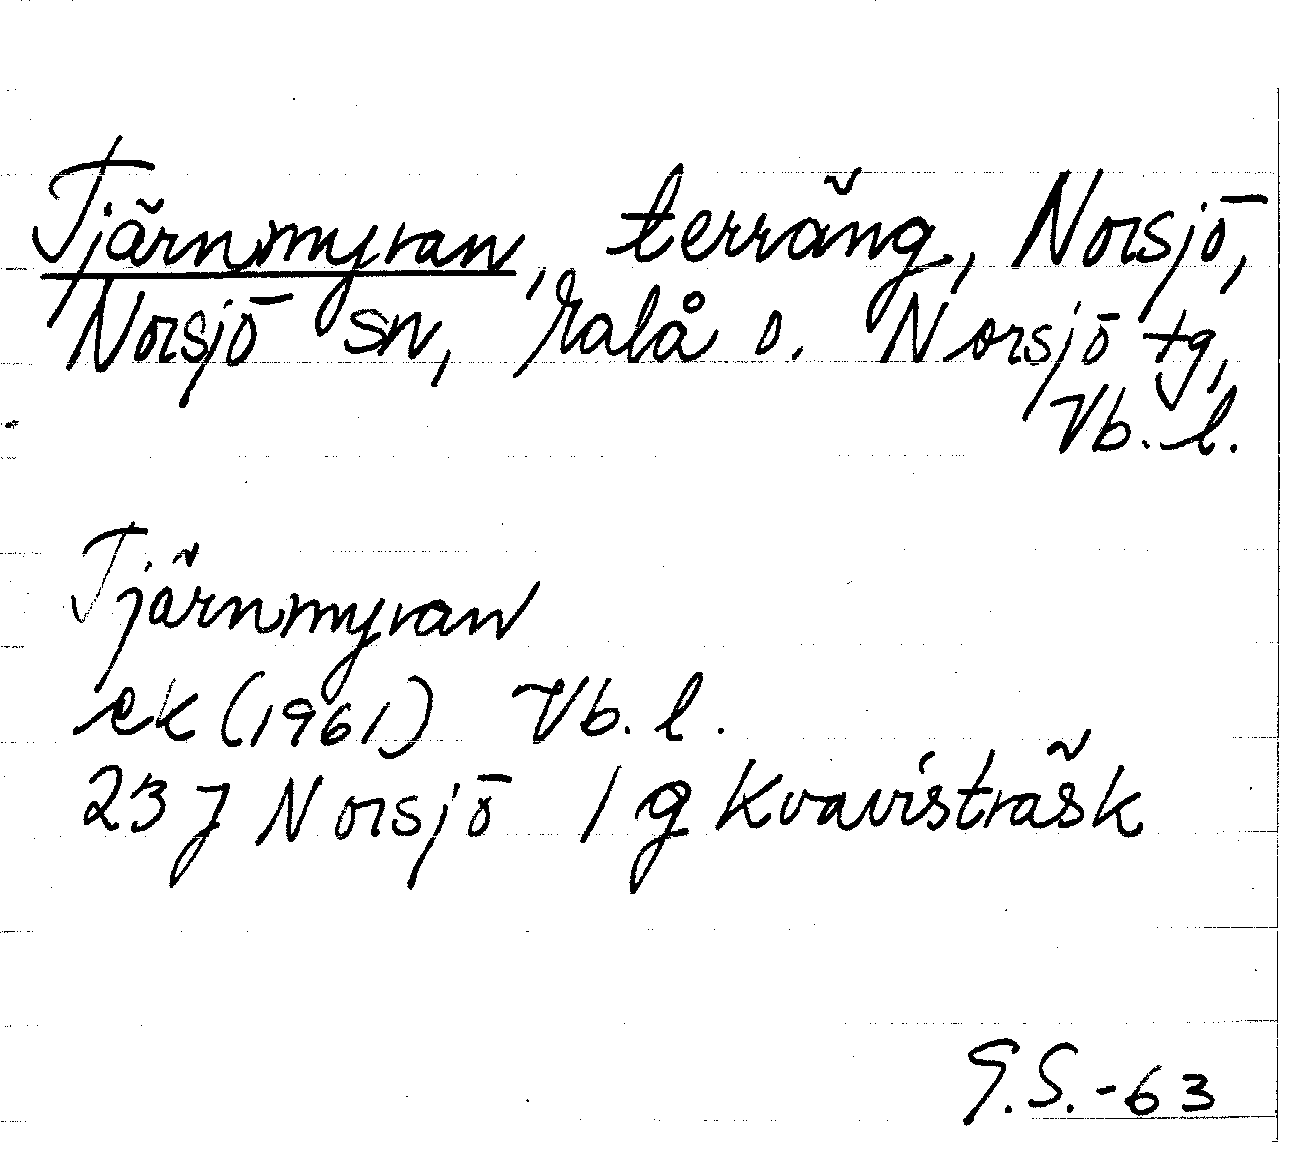 Tjärnmyran, terräng, Norsjö,
Norsjö sn, Malå o. Norsjö tg,
Vb. l.
Tjärnmyran
ek (1961) Vb. l.
23 J Norsjö 1 g Kvavisträsk
G.S.-63